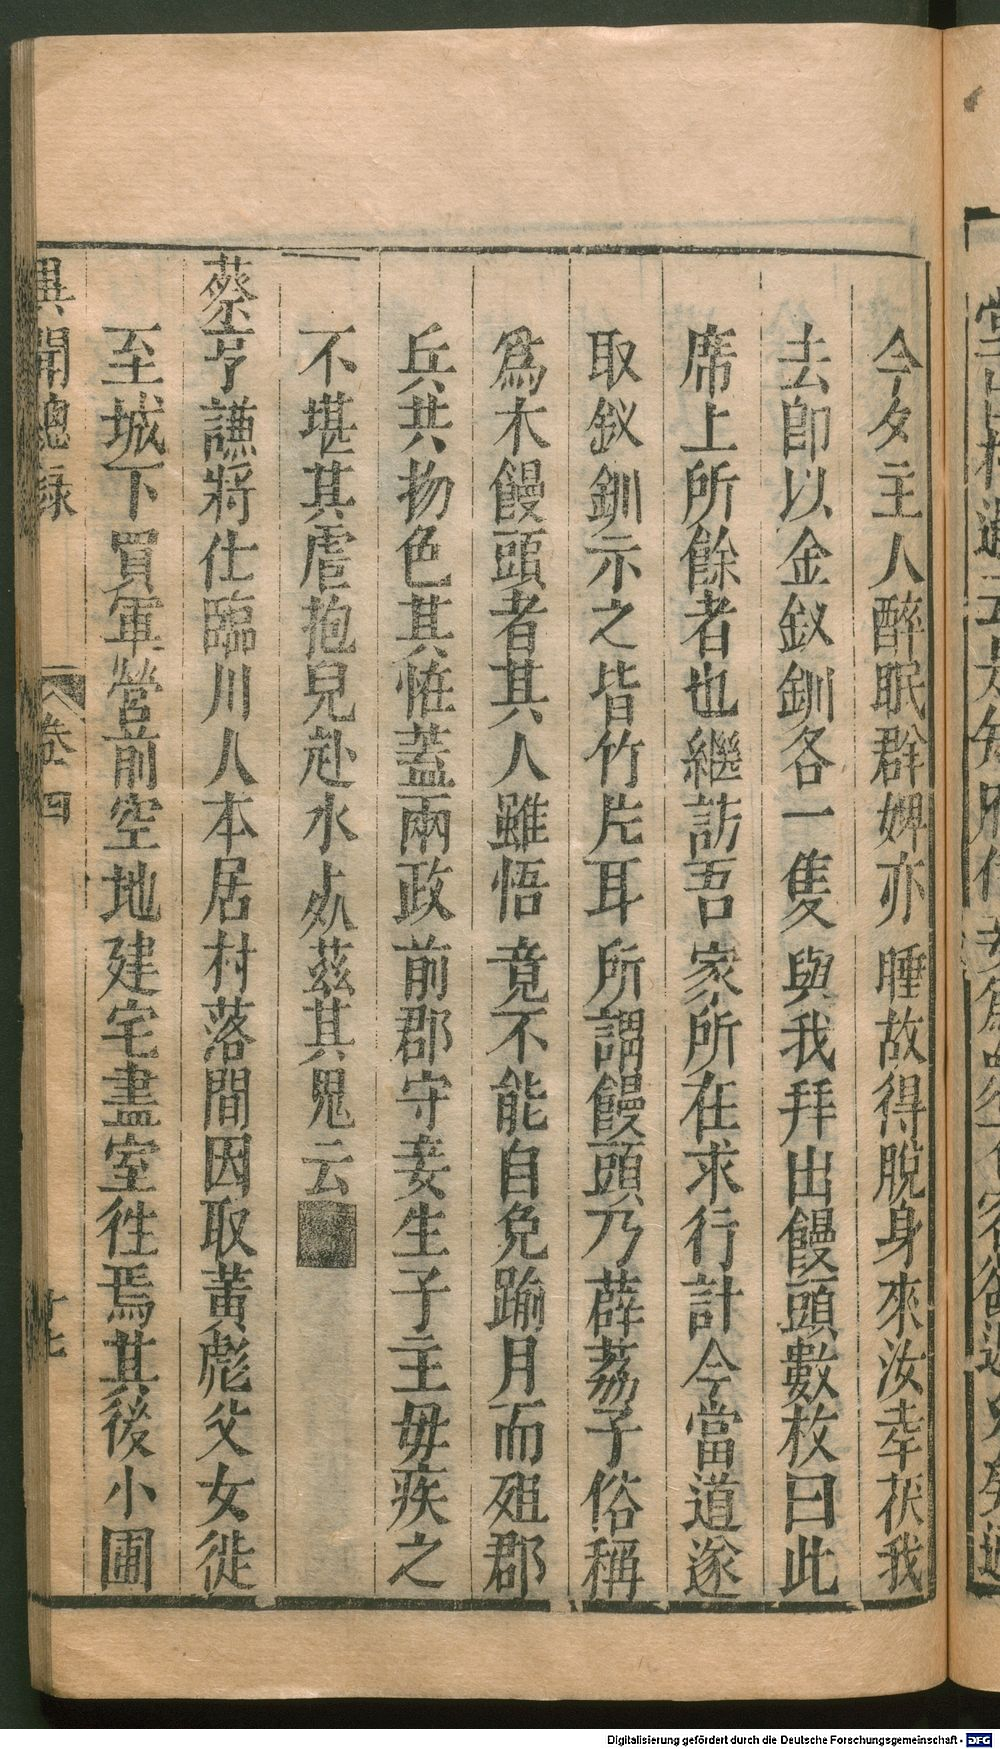 今夕主人醉眠群婢亦睡故得脫身來汝幸茯我
去卽以金釵釧各一隻與我拜出饅頭數枚曰此
席上所餘者也繼訪吾家所在求行計今當道遂
取釵釧示之皆竹片耳所謂饅頭乃薜荔子俗稱
爲木饅頭者其人雖悟竟不能自免踰月而殂郡
兵共物色其恠蓋兩政前郡守妾生子主毋疾之
不堪其虐抱兒赴水處茲其鬼云
蔡亨謙將仕臨川人本居村落間因取黃彪父女徙
至城下買軍營前空地建宅盡室徃焉其後小圃
異聞總録 卷四 十七
Digitalisierung gefördert durch die Deutsche Forschungsgemeinschaft - DFG